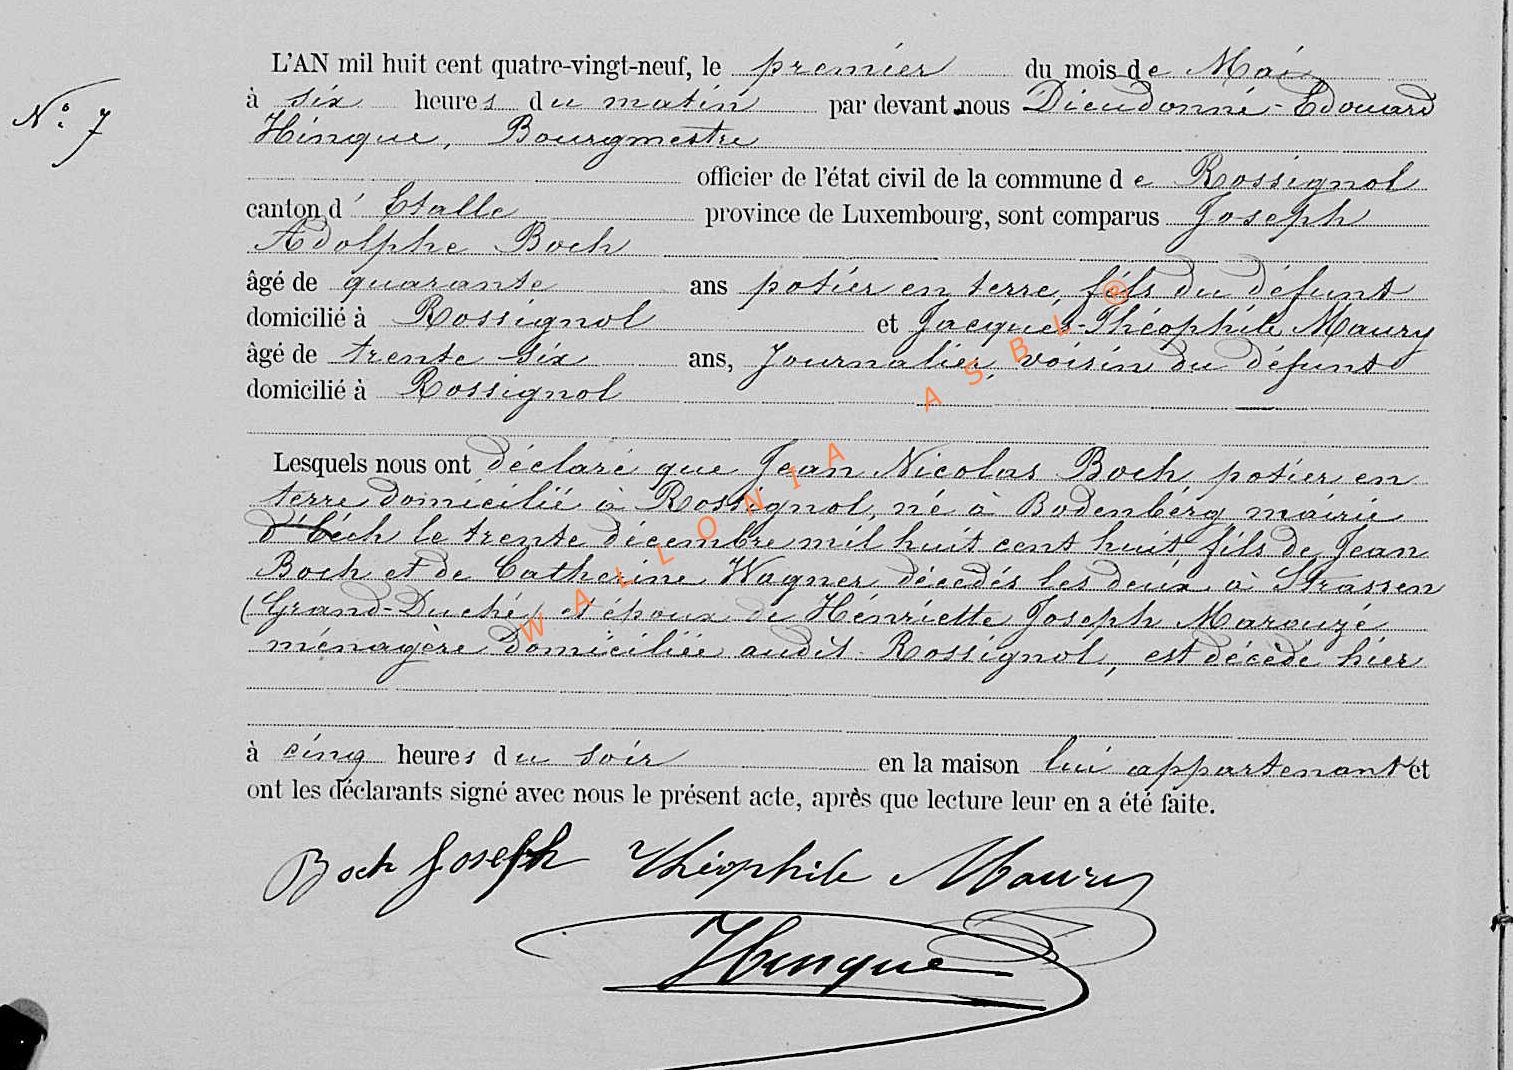 N° 7
L'AN mil huit cent quatre-vingt-neuf, le premier du mois de Mai
à six heures du matin par devant nous Dieudonné-Edouard
Hinque, Bourgmestre
officier de l'état civil de la commune de Rossignol
canton d'Etalle province de Luxembourg, sont comparus Joseph
Adolphe Boch
âgé de quarante ans potier en terre, fils du défunt
domicilié à Rossignol et Jacques-Théophile Maury
âgé de trente six ans, Journalier, voisin du défunt
domicilié à Rossignol
Lesquels nous ont déclaré que Jean Nicolas Boch potier en
terre domicilié à Rossignol, né à Bodenberg mairie
le trente décembre mil huit cent huit fils de Jean
Boch et de Catherine Wagner décedés les deux à Strassen
(Grand-Duché) et époux de Hénriette Joseph Marouzé
ménagère domiciliée audit Rossignol, est décédé hier
à cinq heures du soir en la maison lui appartenant et
ont les déclarants signé avec nous le présent acte, après que lecture leur en a été faite.
Boch Joseph Théophile Maury
Hinque
WALLONIA ASBL ®